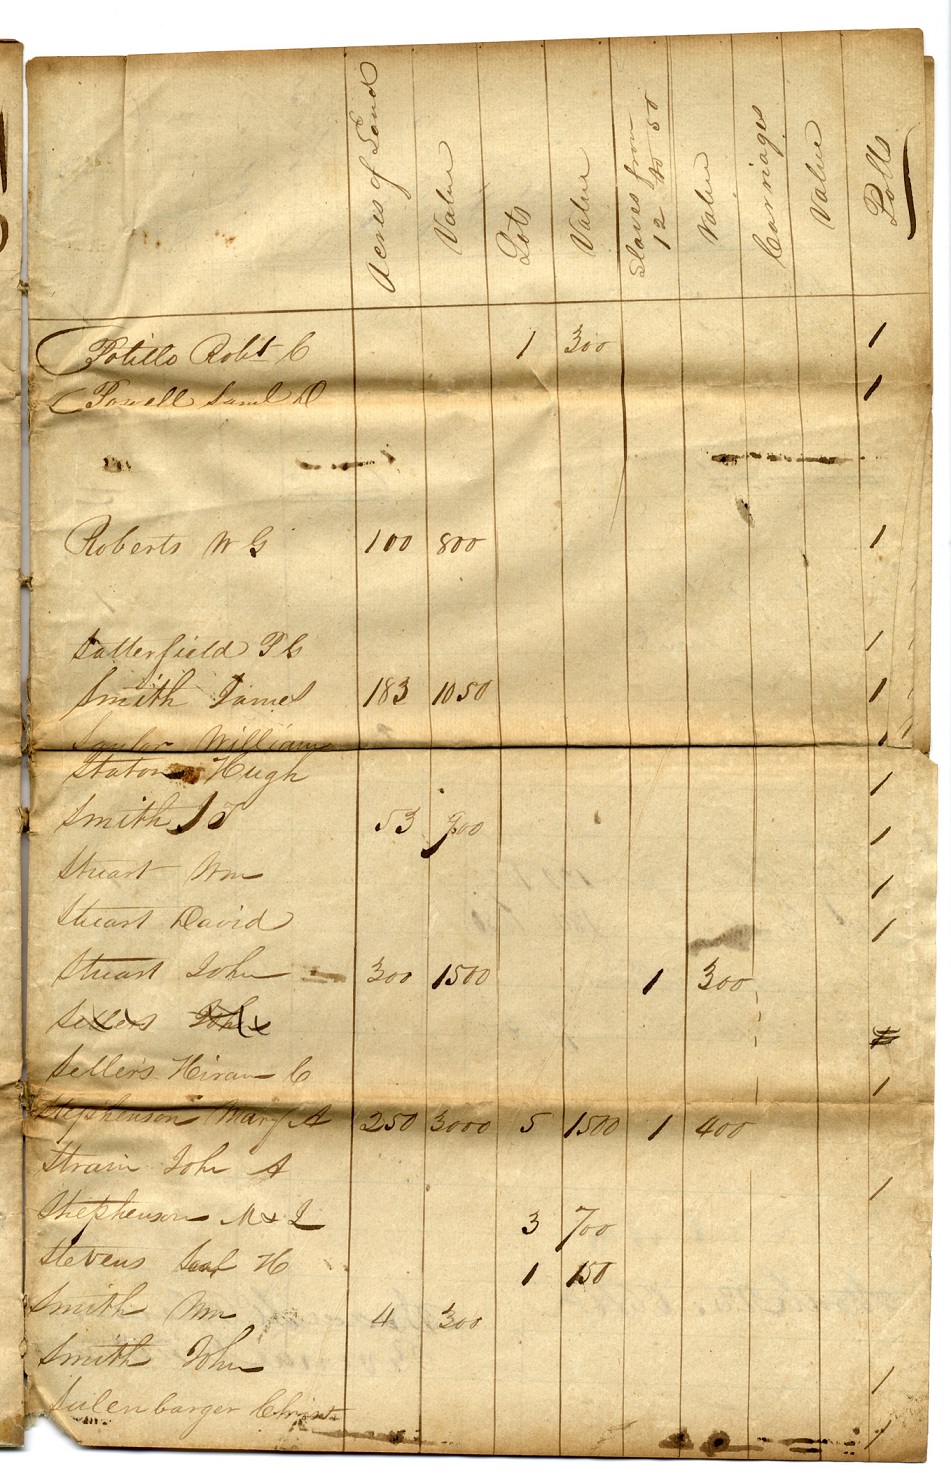 Acres of Land Value Lots Value Slaves from 12 to 50 Value Carriages Value Polls
Potillo Robt C 1 300 1
Powell Saml D 1
Roberts W G 100 800 1
Satterfield P G 1
Smith James 183 1050 1
William 1
Staton Hugh 1
Smith J T 53 700 1
Stuart Wm 1
Stuart David 1
Stuart John 300 1500 1 300
Sellers John 1
Sellers Hiram C 1
Stephenson Mary A 250 3000 5 1500 1 400
Strain John A 1
Stephenson M & L 3 700
Stevens H 1 150
Smith Wm 4 300
Smith John 1
Sulenbarger Christ 1